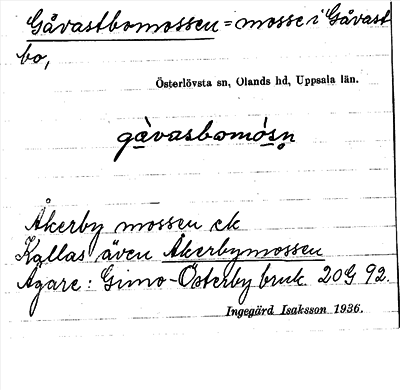 Gåvastbomossen = mosse i Gåvast
bo,
Österlövsta sn, Olands hd, Uppsala län.
gå̀vasbomó̀sn̥
Åkerby mossen ek
Kallas även Åkerbymossen
Ägare: Gimo-Österby bruk. 20G 92.
Ingegärd Isaksson 1936.